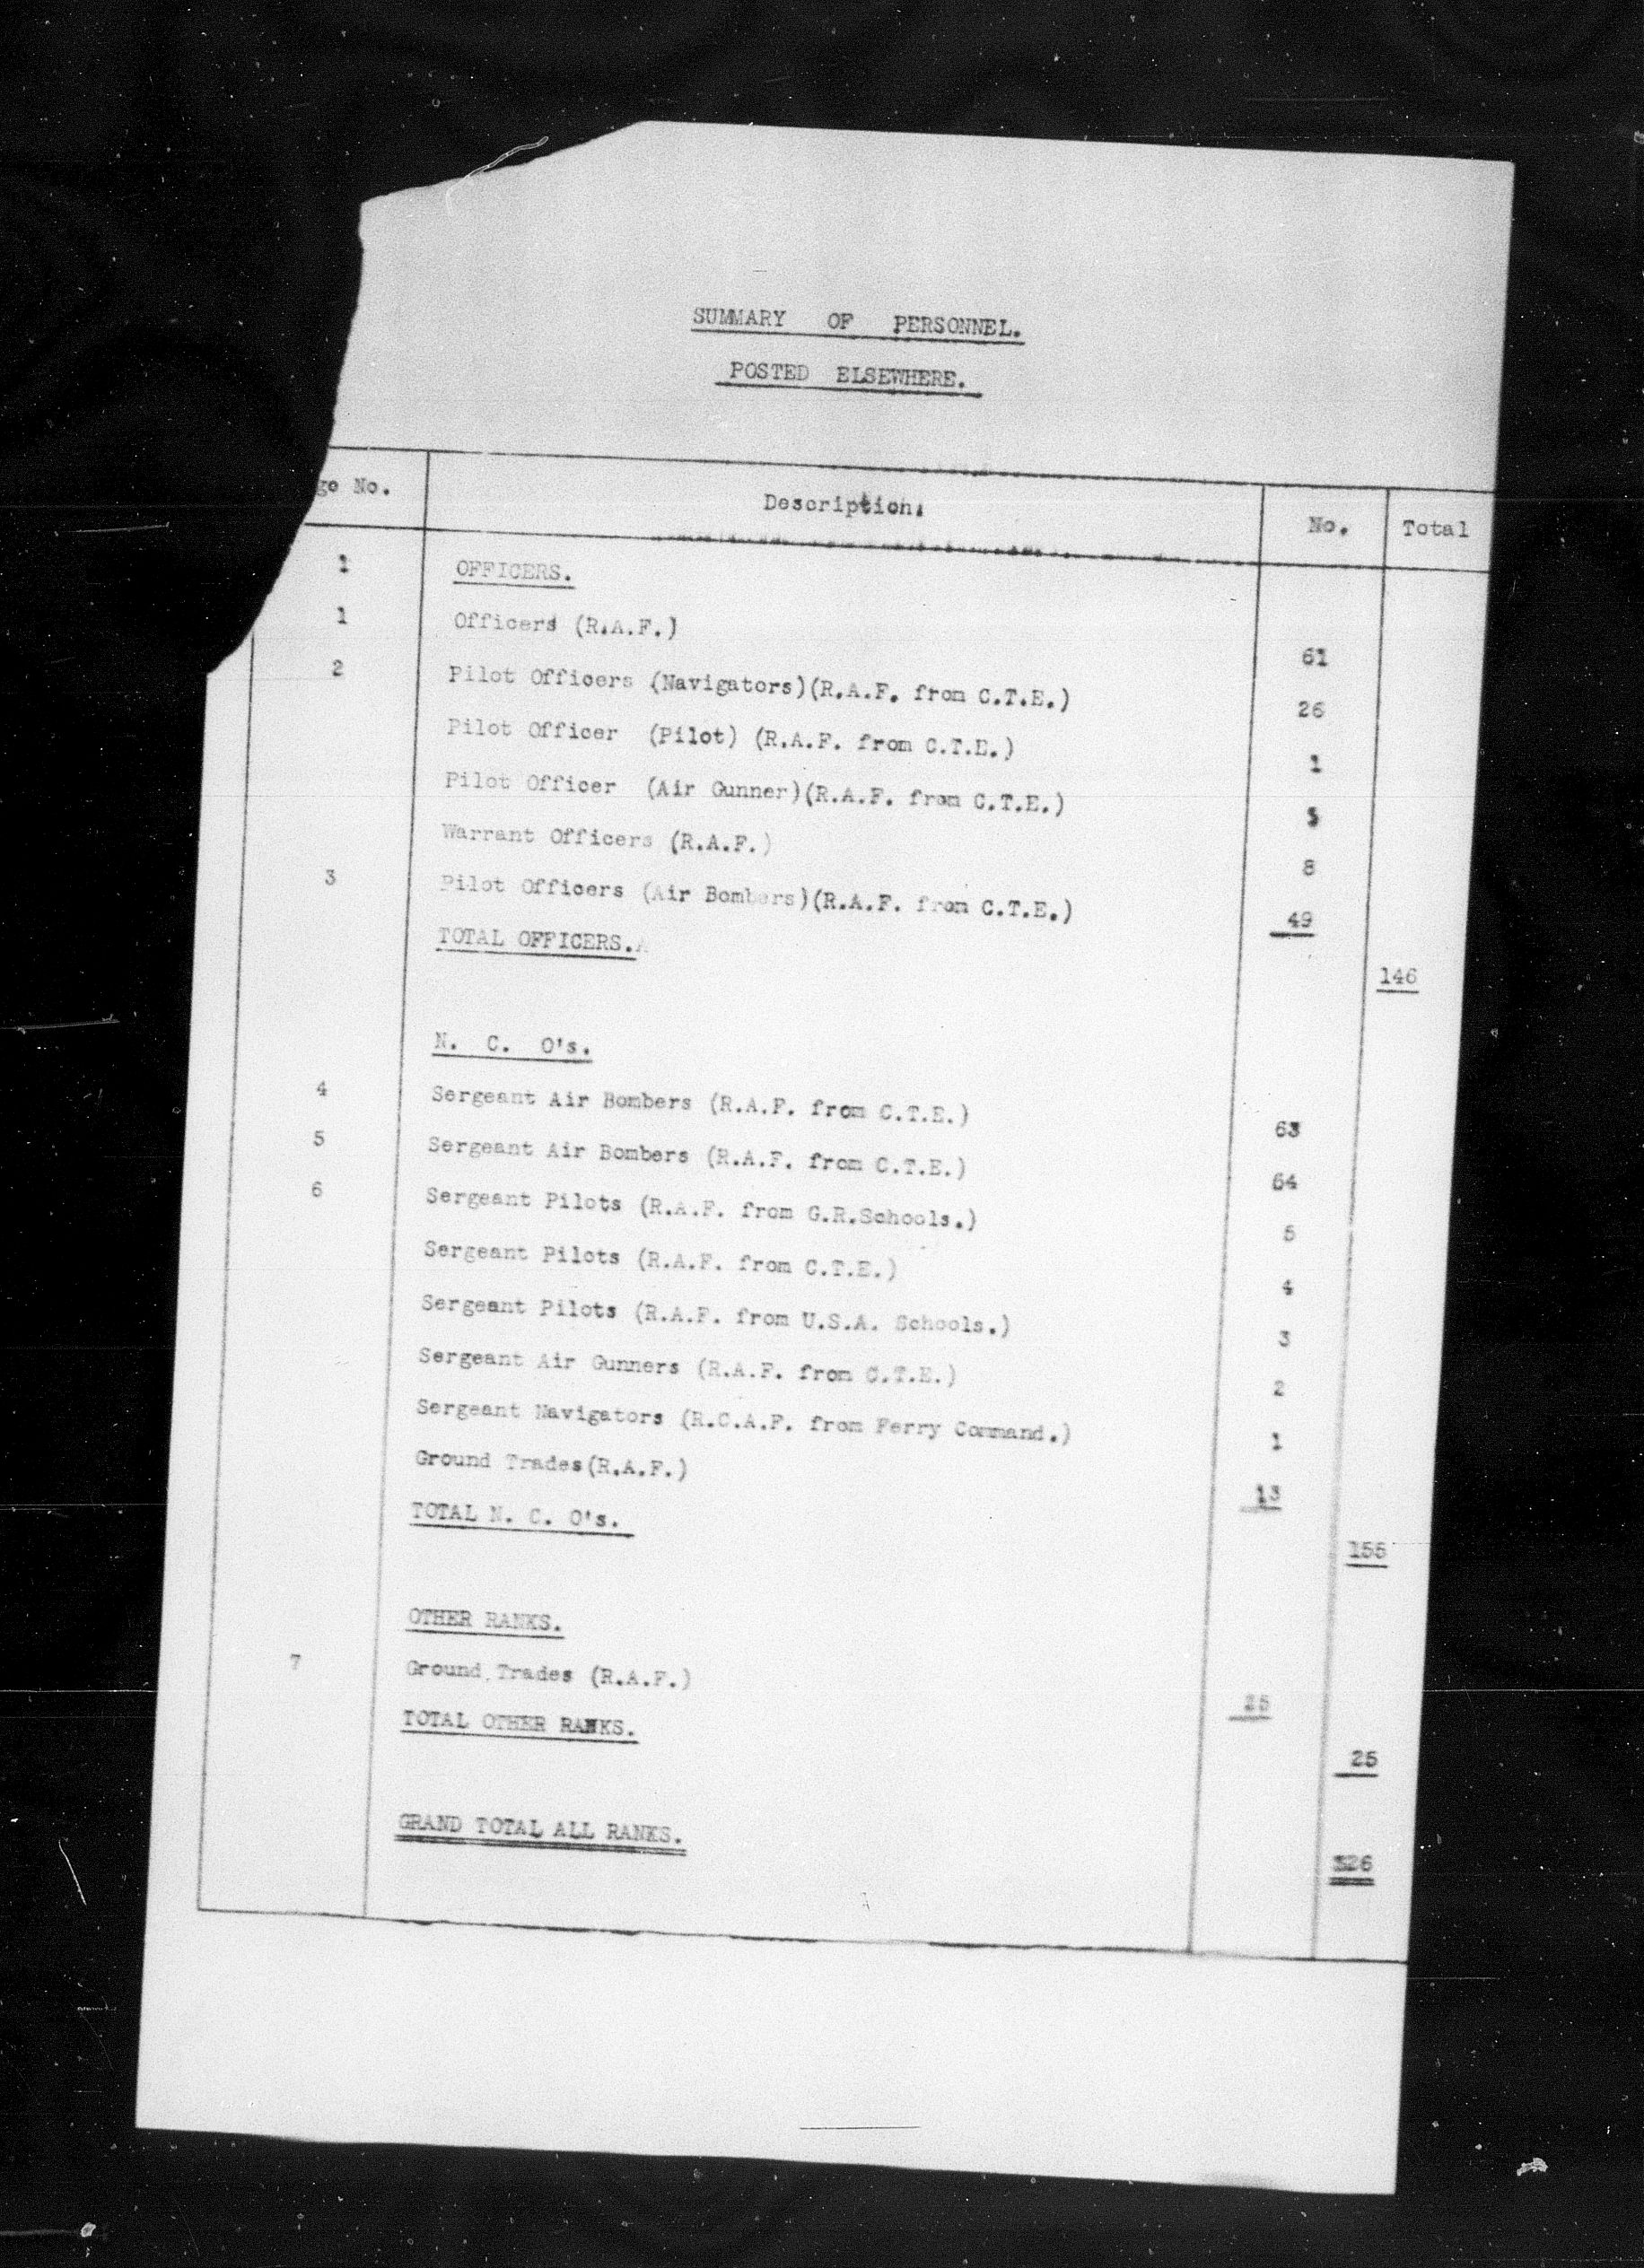 SUMMARY OF PERSONNEL.
POSTED ELSEWHERE.
ge No. Description. No. Total
1 OFFICERS.
1 Officers (R.A.F.) 61
2 Pilot Officers (Navigators)(R.A.F. from C.T.E.) 26
Pilot Officer (Pilot) (R.A.F. from C.T.E.) 1
Pilot Officer (Air Gunner)(R.A.F. from C.T.E.)
Warrant Officers (R.A.F.) 8
3 Pilot Officers (Air Bombers)(R.A.F. from C.T.E.) 49
TOTAL OFFICERS. 146
N. C. O's.
4 Sergeant Air Bombers (R.A.F. from C.T.E.) 63
5 Sergeant Air Bombers (R.A.F. from C.T.E.) 64
6 Sergeant Pilots (R.A.F. from G.R.Schools.) 5
Sergeant Pilots (R.A.F. from C.T.E.) 4
Sergeant Pilots (R.A.F. from U.S.A. Schools.) 3
Sergeant Air Gunners (R.A.F. from C.T.E.) 2
Sergeant Navigators (R.C.A.F. from Ferry Command.) 1
Ground Trades(R.A.F.) 13
TOTAL N. C. O's. 155
OTHER RANKS.
7 Ground Trades (R.A.F.) 25
TOTAL OTHER RANKS. 25
GRAND TOTAL ALL RANKS. 326